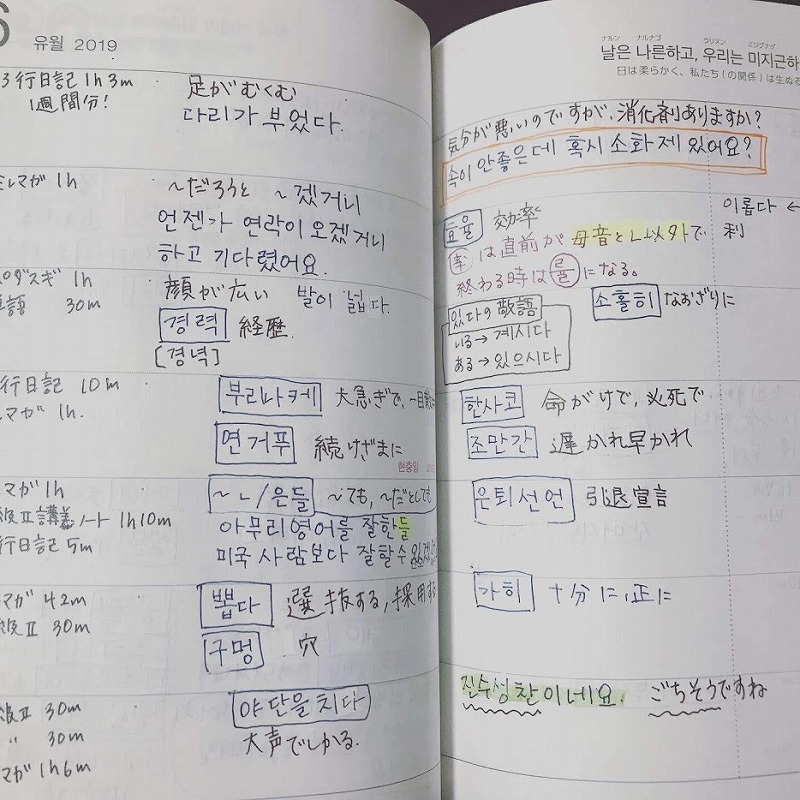 6
유월 2019
3行日記 1h 3m
1週間分!
足がむくむ
다리가 부었다.
メルマガ 1h
~だろうと ~겠거니
언젠가 연락이 오겠거니
하고 기다렸어요.
1h
30m
顔が広い 발이 넓다.
경력 経歴.
[경녁]
行日記 10m
マガ 1h.
부리나케 大急ぎで、一目散に
연거푸 続けざまに
현충일
マガ 1h
級Ⅱ講義ノート 1h10m
行日記 5m
~ㄴ/은들 ~ても, ~だとしても
아무리 영어를 잘한들
미국 사람보다 잘할 수
マガ 42m
級Ⅱ 30m
뽑다 選抜する, 採用する
구멍 穴
級Ⅱ 30m
〃 30m
マガ 1h6m
야단을 치다
大声でしかる.
ナルン ナルナゴ ウリヌン ミジグナダ
날은 나른하고, 우리는 미지근하
日は柔らかく、私たち(の関係)は生ぬる
気分が悪いのですが, 消化剤ありますか?
속이 안좋은데 혹시 소화제 있어요?
효율 効率
이롭다 ←
利
率は直前が母音とㄴ以外で
終わる時は률になる。
있다の敬語
いる→계시다
ある→있으시다
소홀히 なおざりに
한사코 命がけで, 必死で
조만간 遅かれ早かれ
은퇴선언 引退宣言
가히 十分に, 正に
진수성찬이네요. ごちそうですね